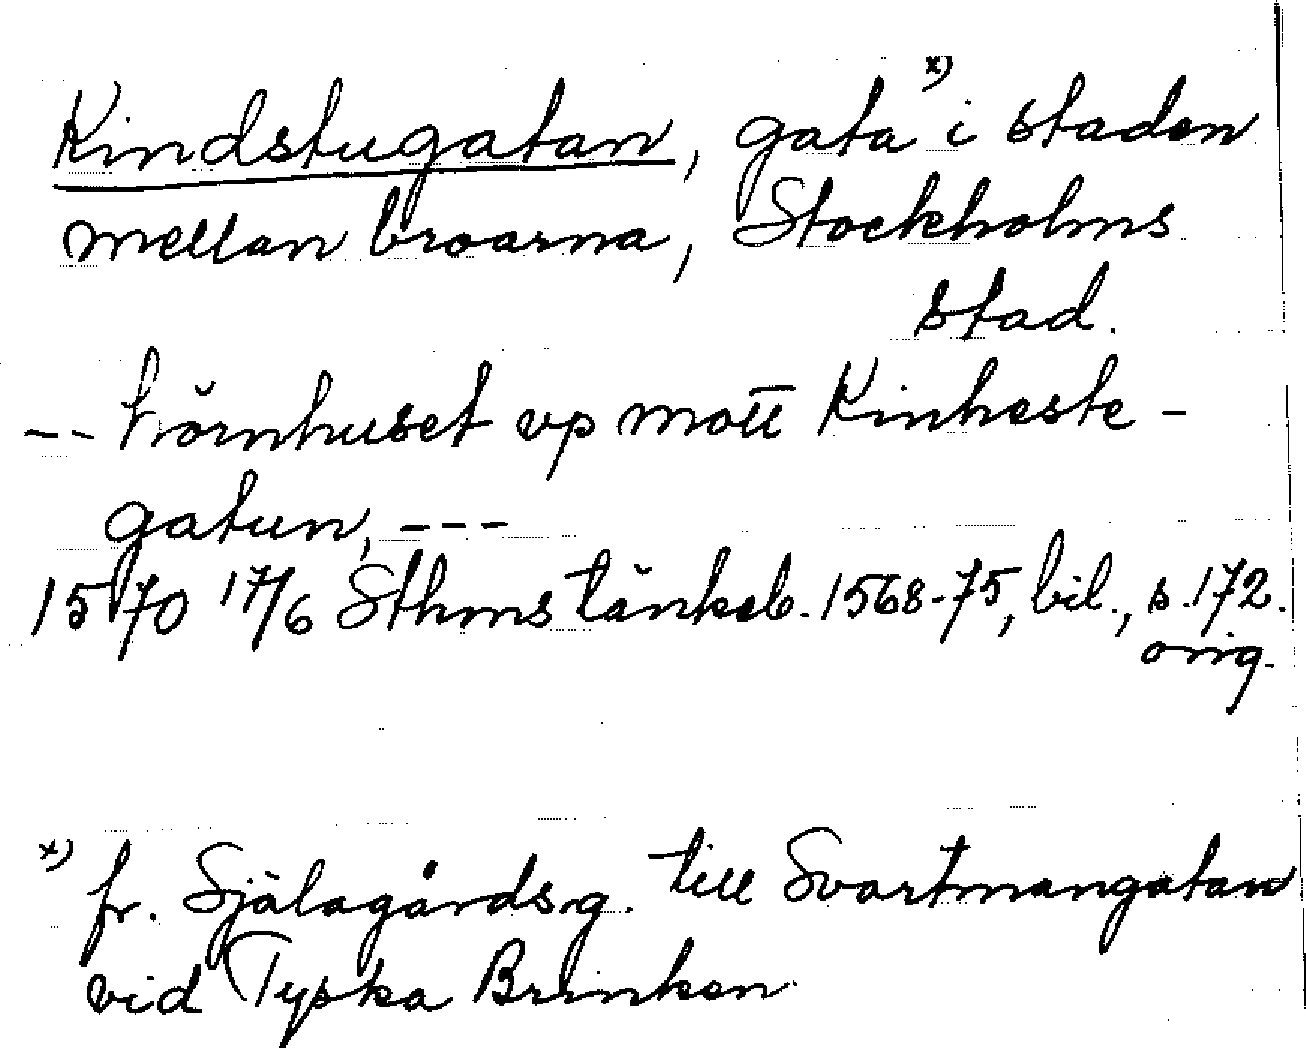 Kindstugatan, gata x) i staden
mellan broarna, Stockholms
stad.
-- hörnhuset vp mott Kinheste-
gatun, ---
1570 17/6 Sthms tänkeb. 1568-75, bil., s. 172.
orig.
x) fr. Själagårdsg. till Svartmangatan
vid Tyska Brinken